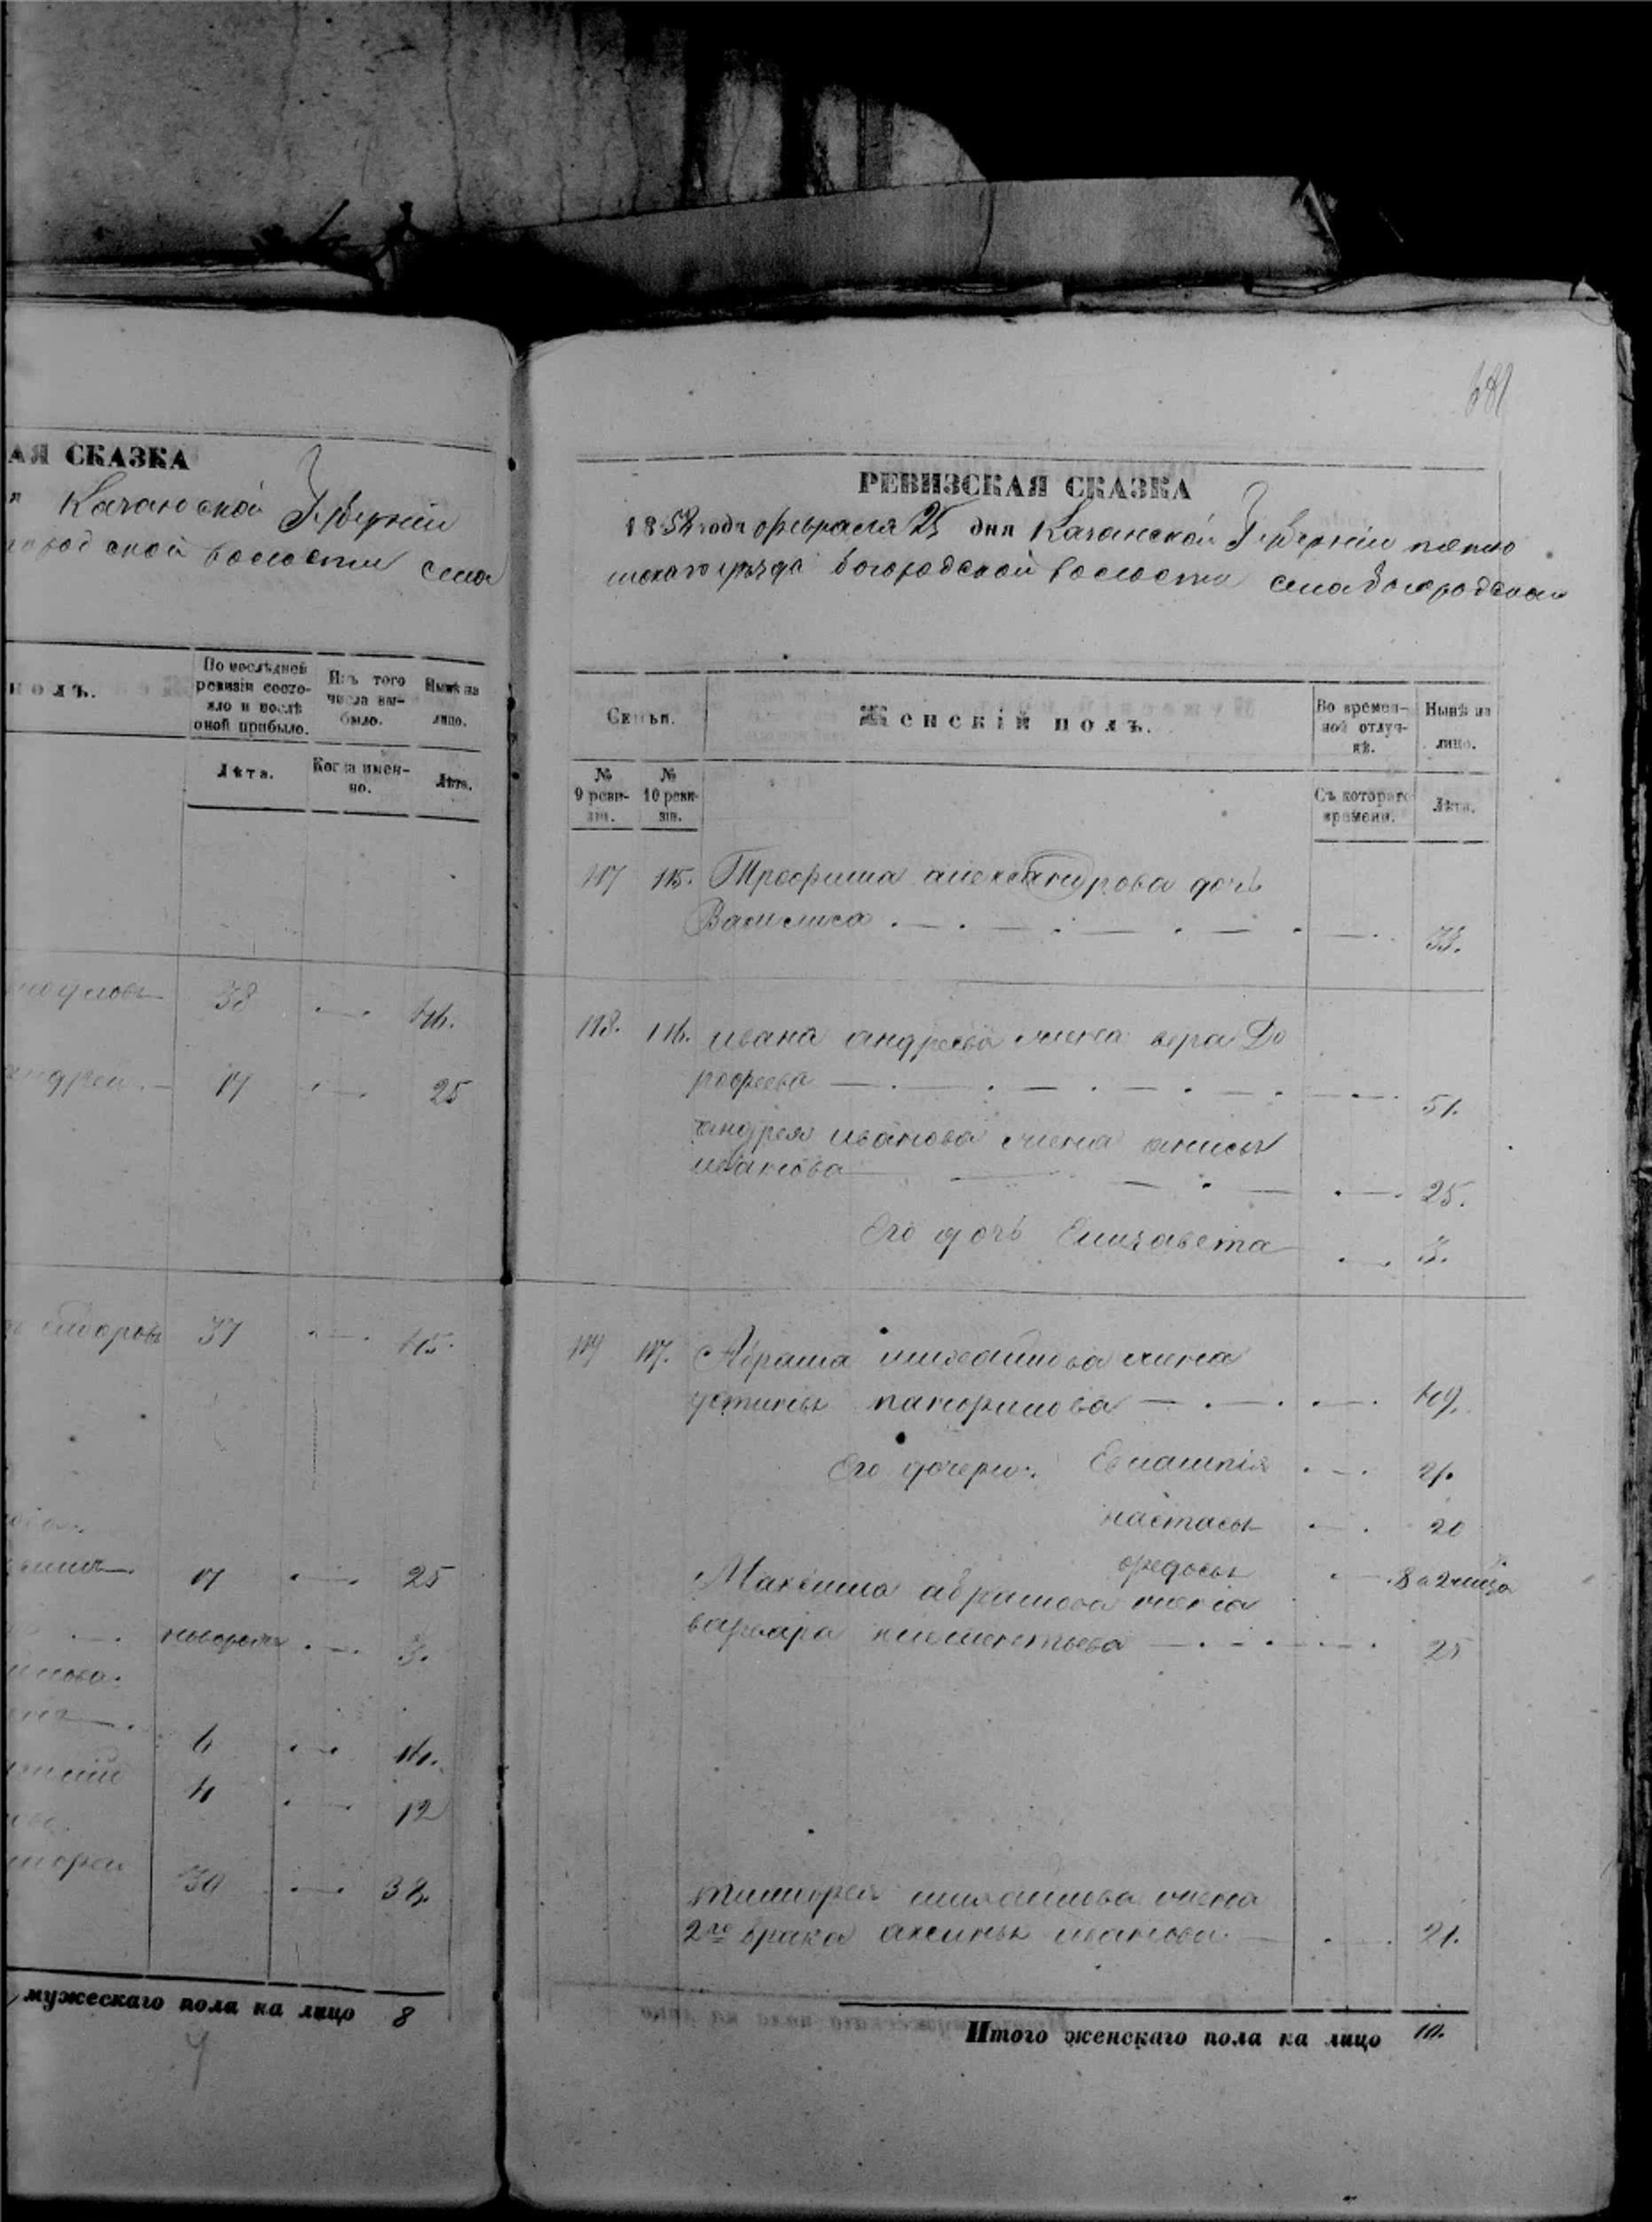 АЯ СКАЗКА
я Казанской Губерніи
городской волости села
полъ.
По послѣдней ревизіи состояло и послѣ оной прибыло.
Изъ того числа выбыло.
Нынѣ на лицо.
Лѣта.
Когда именно.
Лѣта.
38 46.
андрей. 17 25
37 45.
17 25
новорож 3.
6 14.
4 12
30 38.
мужескаго пола на лицо 8
681
РЕВИЗСКАЯ СКАЗКА
1858 года февраля 25 дня Казанской Губерніи
уѣзда богородской волости села богородскаго
Семьи.
Женскій полъ.
Во временной отлучкѣ.
Нынѣ на лицо.
№ 9 ревизіи.
№ 10 ревизіи.
Съ котораго времени.
Лѣта.
117 115. Трофима александрова дочь
Василиса 33.
118. 116. ивана андреева жена вера До
рофеева 51.
андрея иванова жена анисья
иванова 25.
Его дочь Елизавета 3.
119 117. Абрама михайлова жена
устинья панфилова 49.
Его дочери: Евлампія 21.
настасья 20
федосья 8
Максима абрамова жена
варвара климентьева 25
тимофея михайлова жена
2го брака аксинья иванова 21.
Итого женскаго пола на лицо 10.